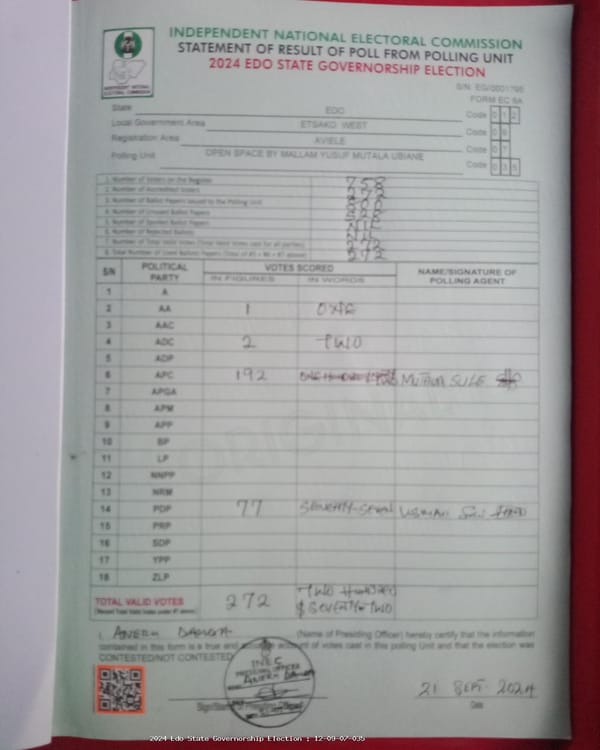 INDEPENDENT NATIONAL ELECTORAL COMMISSION
STATEMENT OF RESULT OF POLL FROM POLLING UNIT
2024 EDO STATE GOVERNORSHIP ELECTION
INDEPENDENT NATIONAL
ELECTORAL COMMISSION
S/N: EG/0001795
FORM EC 8A
State EDO Code 0 1 2
Local Government Area ETSAKO WEST Code 0 9
Registration Area AVIELE Code 0 7
Polling Unit OPEN SPACE BY MALLAM YUSUF MUTALA UBIANE Code 0 3 5
1. Number of Voters on the Register 758
2. Number of Accredited Voters 272
3. Number of Ballot Papers issued to the Polling Unit 800
4. Number of Unused Ballot Papers 528
5. Number of Spoiled Ballot Papers NIL
6. Number of Rejected Ballots NIL
7. Number of Total Valid Votes (Total Valid Votes cast for all parties) 272
8. Total Number of Used Ballot Papers (Total of #5 + #6 + #7 above) 272
S/N POLITICAL PARTY VOTES SCORED NAME/SIGNATURE OF POLLING AGENT
IN FIGURES IN WORDS
1 A
2 AA 1 ONE
3 AAC
4 ADC 2 TWO
5 ADP
6 APC 192 MUTALA SULE
7 APGA
8 APM
9 APP
10 BP
11 LP
12 NNPP
13 NRM
14 PDP 77 SEVENTY-SEVEN USMAN
15 PRP
16 SDP
17 YPP
18 ZLP
TOTAL VALID VOTES 272 TWO HUNDRED
& SEVENTY-TWO
I, (Name of Presiding Officer) hereby certify that the information
contained in this form is a true and account of votes cast in this polling Unit and that the election was
CONTESTED/NOT CONTESTED
INEC
PRESIDING OFFICER
21 SEPT. 2024
Date
2024 Edo State Governorship Election : 12-09-07-035